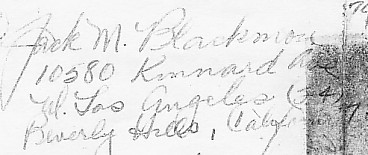 Jack M. Blackmon
10580 Kinnard Ave
W. Los Angeles (24)
Beverly Hills, California